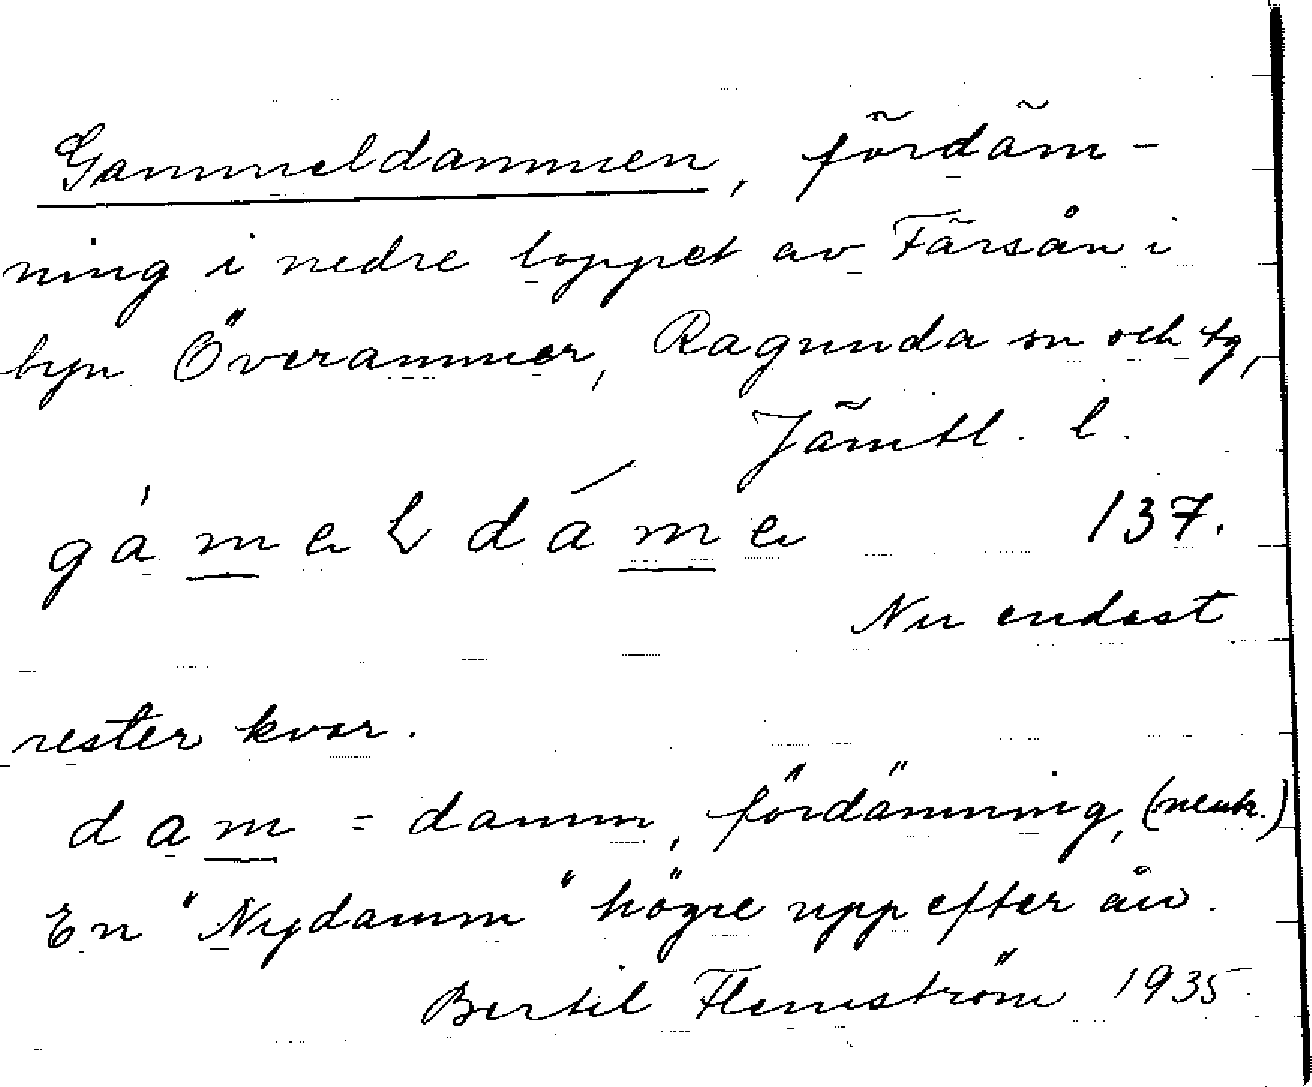 Gammeldammen, fördäm-
ning i nedre loppet av Färsån i
byn Överammer, Ragunda sn och tg,
Jämtl. l.
gàmeldáme 137.
Nu endast
rester kvar.
dam = damm, fördämning, (neutr.)
En "Nydamm" högre upp efter ån.
Bertil Flemström 1935.